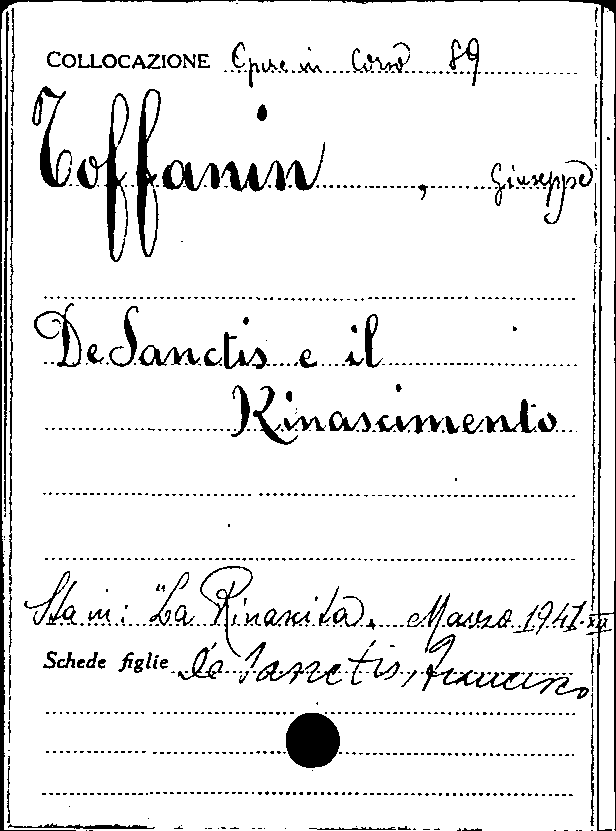 COLLOCAZIONE Opere in Corso 89
Toffanin, Giuseppe
De Sanctis e il
Rinascimento
Sta in: "La Rinascita. Marzo 1941-XIX
Schede figlie De Sanctis, Francesco